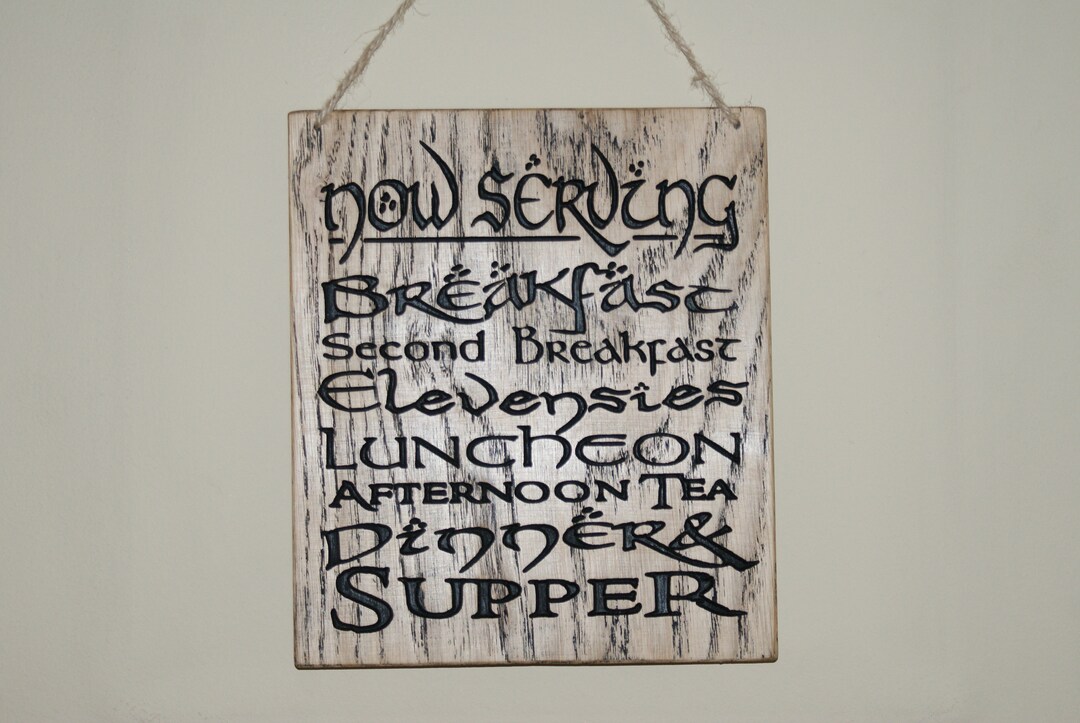 now serving
Breakfast
Second Breakfast
Elevensies
LUNCHEON
AFTERNOON TEA
Dinner &
SUPPER